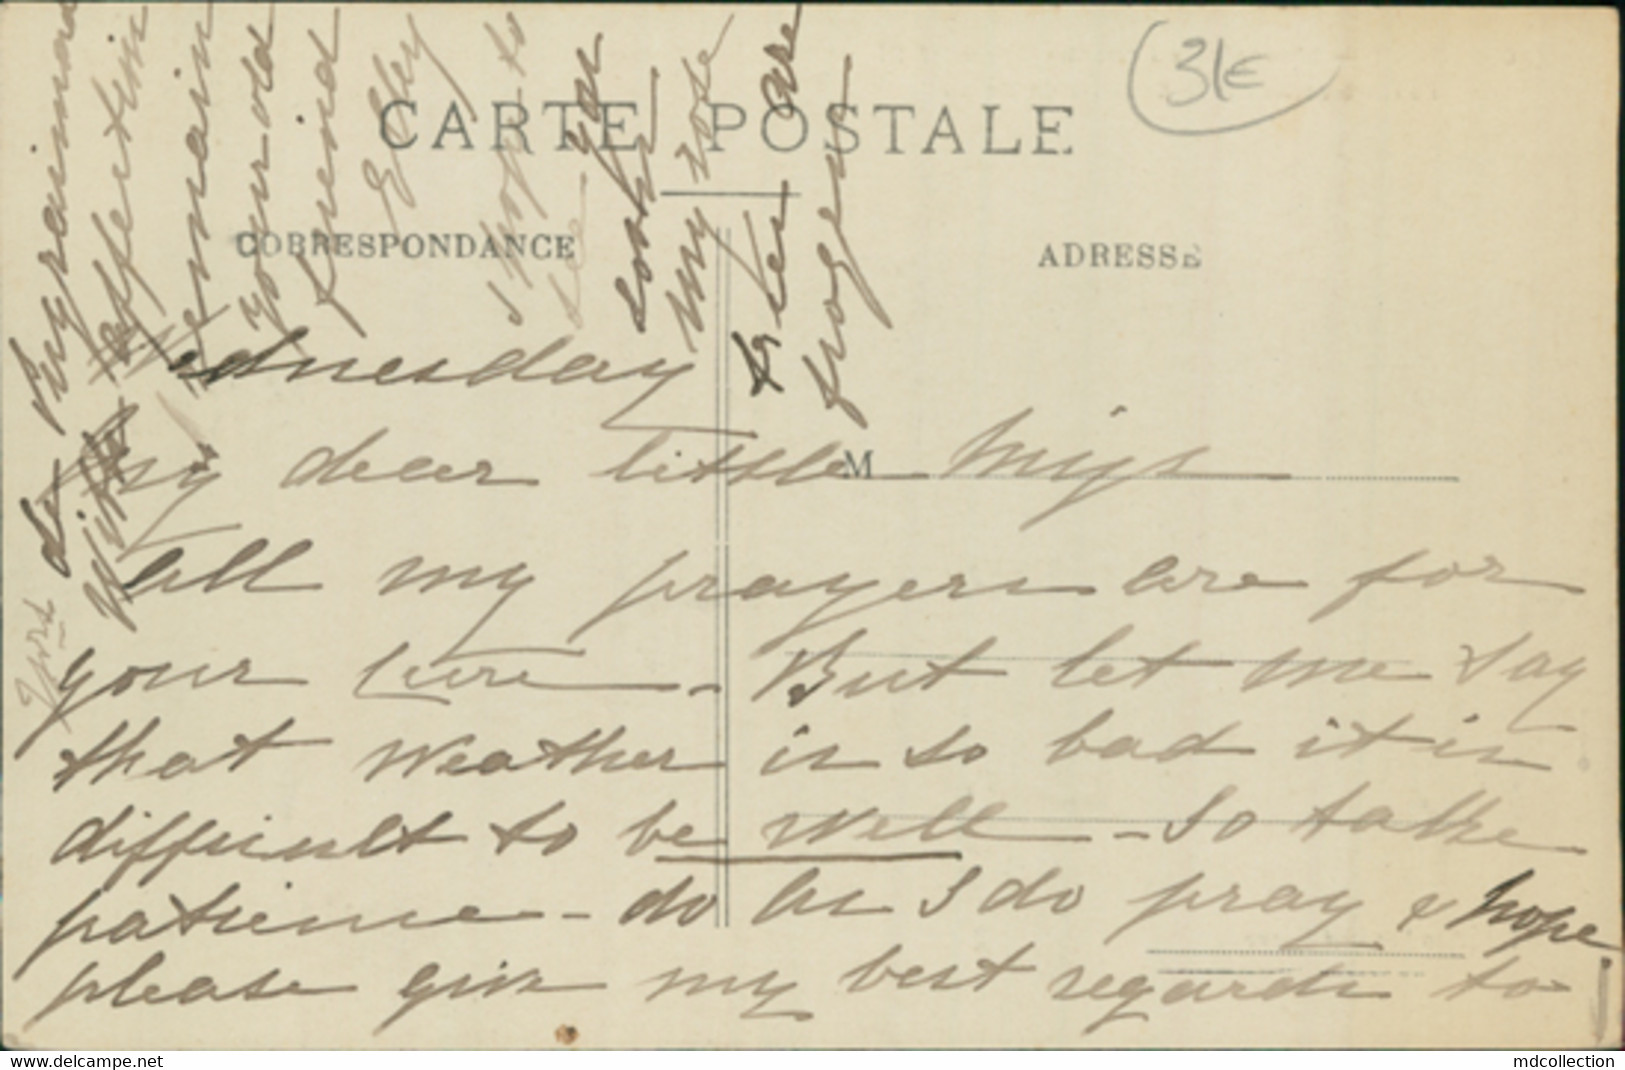 CARTE POSTALE
31E
CORRESPONDANCE
ADRESSE
M
Wednesday
My dear little
All my prayers are for
your cure - But let me say
that Weather is so bad it is
difficult to be well - so take
patience - do as I do pray & hope
please give my best regards to
de Puyraimond
affection
remain
your old
friend
Elley
I hope to
see you
soon
my rose
tree are
frozen
www.delcampe.net
mdcollection